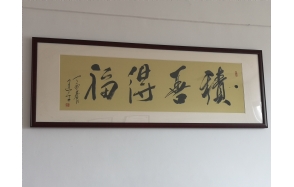 積善得福